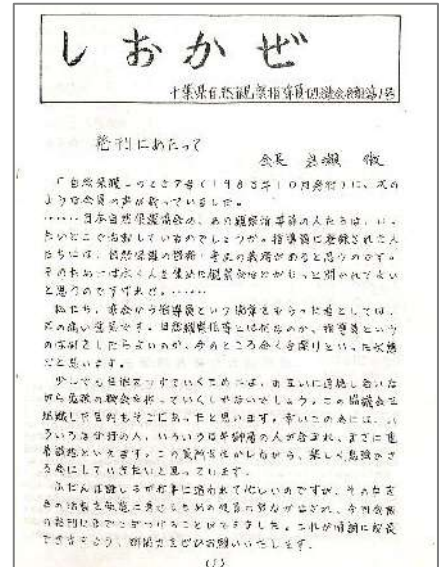 しおかぜ
千葉県自然観察指導員協議会会報第1号
発刊にあたって
会長 岩瀬 徹
「自然保護」のとき9号(1983年10月発行)に、次の
ような会員の声が載っていました。
……日本自然保護協会の、あの観察指導員の人たちは、いっ
たいどこで活動しているのでしょうか。指導員に登録された人
たちには、自然保護の啓蒙・普及の義務があると思うのです。
そのためには広く人を集めた観察会などがもっと開かれてよい
と思うのですけれど。……
私たち、協会から指導員という腕章をもらった者としては、
耳の痛い意見です。自然観察指導とは何なのか、指導員という
のは何をしたらよいのか、今のところ全く手探りといった状態
だと思います。
少しでも仕事をすすめていくためには、お互いに連絡し合いな
がら活動の機会を作っていくしかないでしょう。この協議会を
組織した目的もそこにあったと思います。幸いこの会には、い
ろいろな分野の人、いろいろな年齢層の人が含まれ、まさに
といえます。この長所を生かしながら、楽しく勉強でき
る会にしていきたいと思っています。
ふだんは誰しもが仕事に追われて忙しいのですが、その
の発刊にまでこぎつけることができました。これが順調に成長
できますよう、御協力をぜひお願いいたします。
(1)